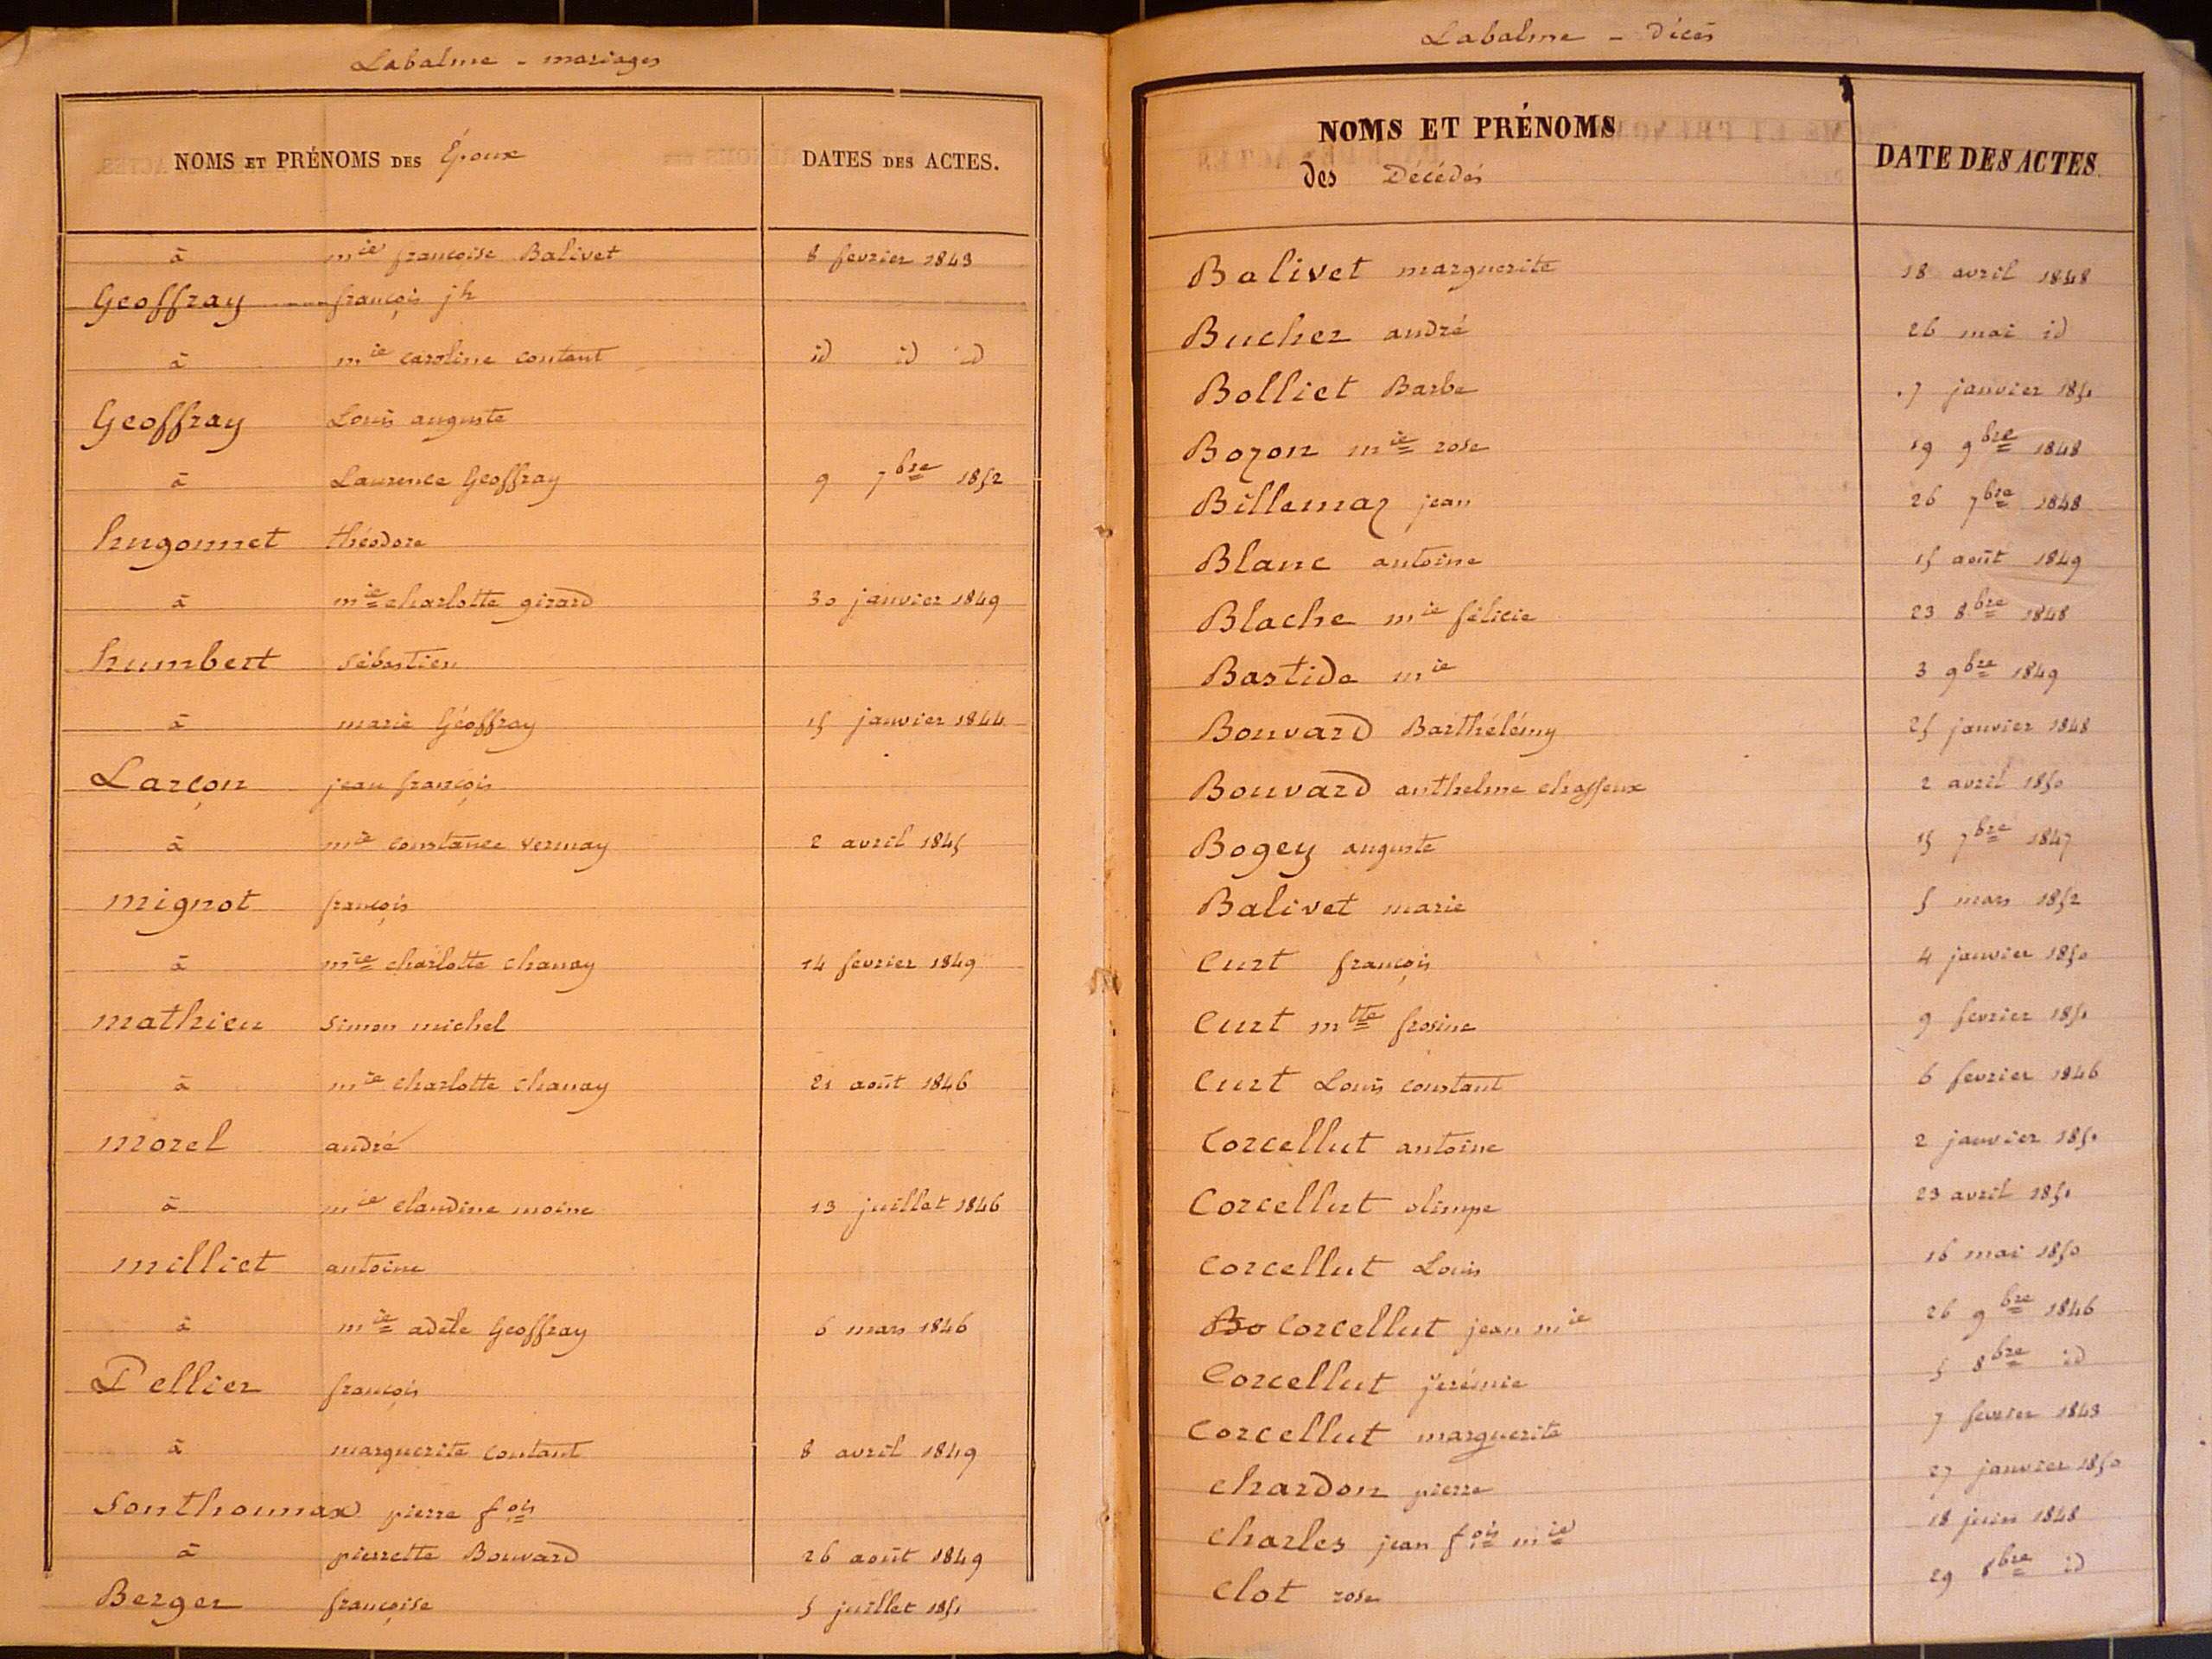 Labalme - mariages
NOMS ET PRÉNOMS DES Époux DATES DES ACTES.
à mie françoise Balivet 8 fevrier 1843
Geoffray françois jh
à mie caroline contant id id id
Geoffray Louis auguste
à Laurence Geoffray 9 7bre 1852
hugonnet théodore
à mie charlotte girard 30 janvier 1849
humbert sébastien
à marie Géoffray 15 janvier 1844
Larçon jean françois
à mie constance vernay 2 avril 1845
mignot françois
à mie charlotte chanay 14 fevrier 1849
mathieu simon michel
à mie charlotte chanay 21 août 1846
morel andré
à mie claudine moine 13 juillet 1846
milliet antoine
à mie adèle Geoffray 6 mars 1846
Pellier françois
à marguerite contant 8 avril 1849
Sonthonnax pierre fois
à pierrette Bouvard 26 août 1849
Berger françoise 5 juillet 1851
Labalme - Décés
NOMS ET PRÉNOMS
des Décédés DATE DES ACTES.
Balivet marguerite 18 avril 1848
Bucher andré 26 mai id
Bolliet Barbe 7 janvier 1851
Bozon mie rose 19 9bre 1848
Billemaz jean 26 7bre 1848
Blanc antoine 15 août 1849
Blache mie félicie 23 8bre 1848
Bastide mie 3 9bre 1849
Bouvard Barthélémy 25 janvier 1848
Bouvard anthelme chaffeux 2 avril 1850
Bogey auguste 15 7bre 1847
Balivet marie 5 mars 1852
Curt françois 4 janvier 1850
Curt mtte frosine 9 fevrier 1851
Curt Louis constant 6 fevrier 1846
Corcellut antoine 2 janvier 1851
Corcellut olimpe 23 avril 1851
Corcellut Louis 16 mai 1850
Bo Corcellut jean mie 26 9bre 1846
Corcellut jerémie 5 8bre id
Corcellut marguerite 7 fevrier 1843
Chardon pierre 27 janvier 1850
Charles jean fois mie 18 juin 1848
Clot rose 29 8bre id